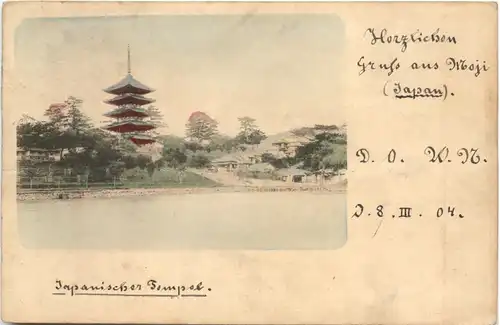 Herzlichen
Gruss aus Moji
(Japan).
D. O. W. N.
D. 8. III. 04.
Japanischer Tempel.